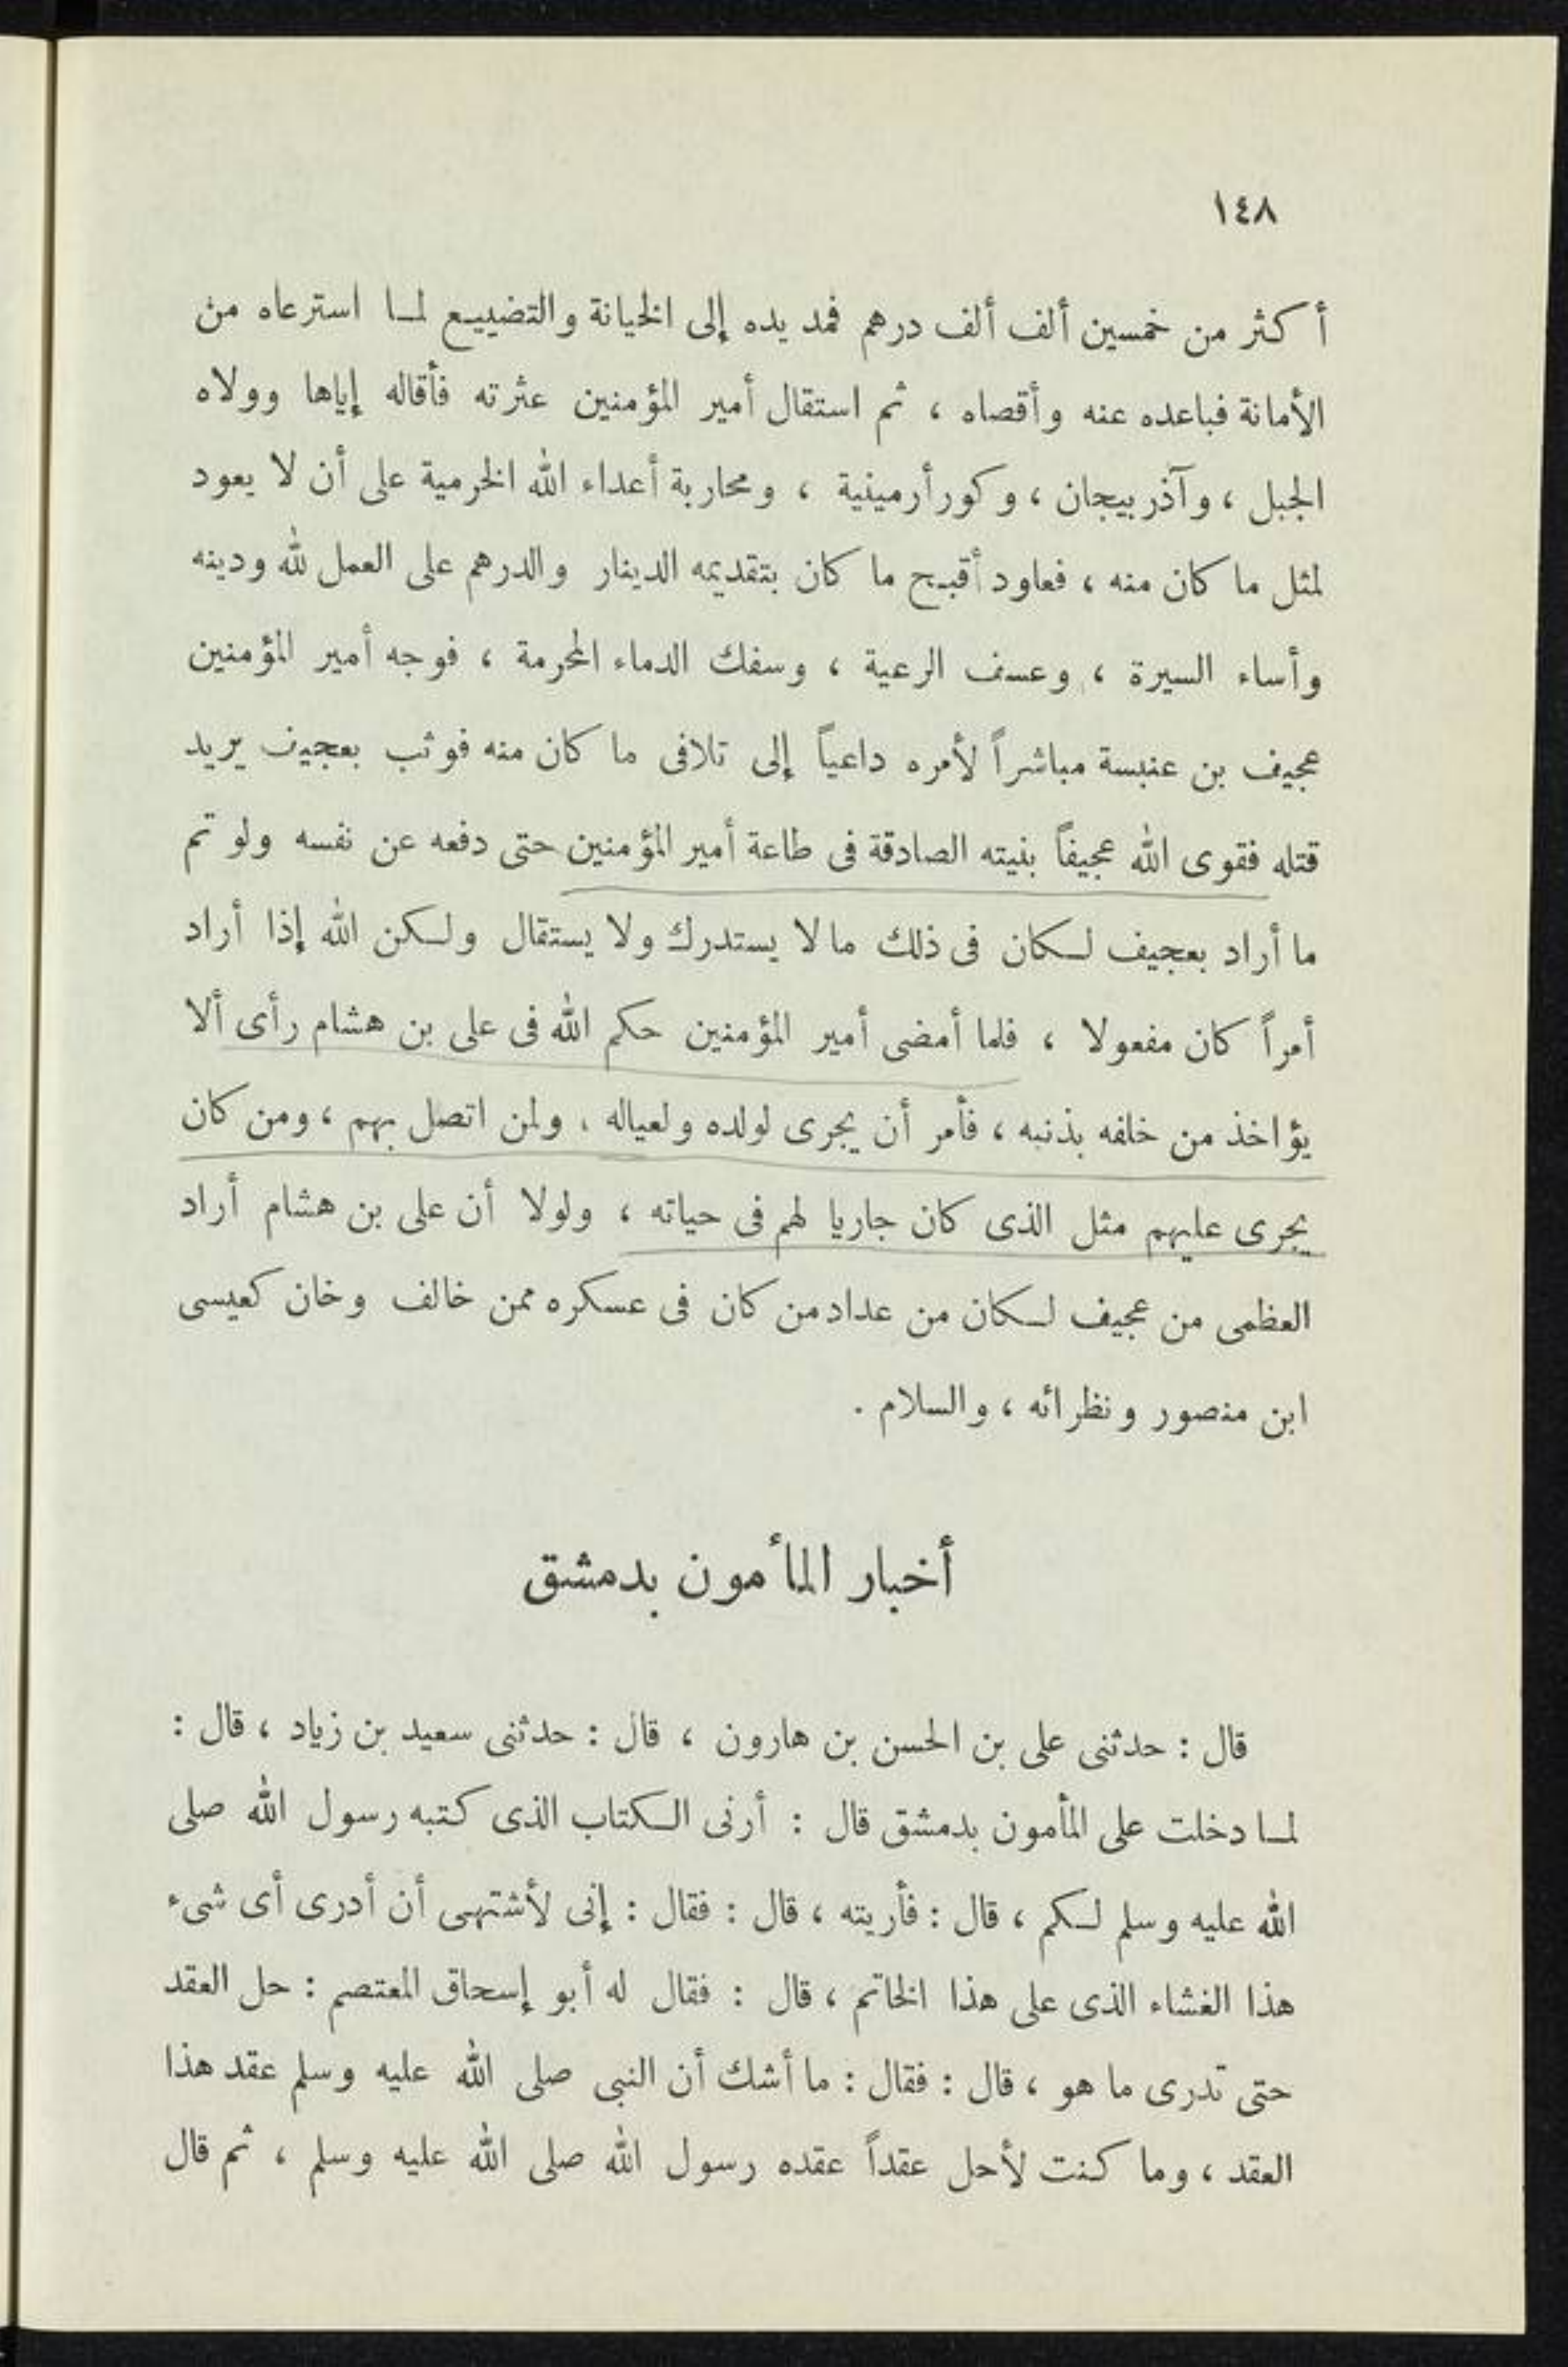 ١٤٨
أكثر من خمسين ألف ألف درهم فمد يده إلى الخيانة والتضييع لما استرعاه من
الأمانة فباعده عنه وأقصاه ، ثم استقال أمير المؤمنين عثرته فأقاله إياها وولاه
الجبل ، وآذربيجان ، وكور أرمينية ، ومحاربة أعداء الله الخرمية على أن لا يعود
لمثل ما كان منه ، فعاود أقبح ما كان بتقديمه الدينار والدرهم على العمل لله ودينه
وأساء السيرة ، وعسف الرعية ، وسفك الدماء المحرمة ، فوجه أمير المؤمنين
عجيف بن عنبسة مباشراً لأمره داعياً إلى تلافى ما كان منه فوثب بعجيف يريد
قتله فقوى الله عجيفاً بنيته الصادقة فى طاعة أمير المؤمنين حتى دفعه عن نفسه ولو تم
ما أراد بعجيف لكان فى ذلك ما لا يستدرك ولا يستقال ولكن الله إذا أراد
أمراً كان مفعولا ، فلما أمضى أمير المؤمنين حكم الله فى على بن هشام رأى ألا
يؤاخذ من خلفه بذنبه ، فأمر أن يجرى لولده ولعياله ، ولمن اتصل بهم ، ومن كان
يجرى عليهم مثل الذى كان جاريا لهم فى حياته ، ولولا أن على بن هشام أراد
العظمى من عجيف لكان من عداد من كان فى عسكره ممن خالف وخان كعيسى
ابن منصور ونظرائه ، والسلام .
أخبار المأمون بدمشق
قال : حدثنى على بن الحسن بن هارون ، قال : حدثنى سعيد بن زياد ، قال :
لما دخلت على المأمون بدمشق قال : أرنى الكتاب الذى كتبه رسول الله صلى
الله عليه وسلم لكم ، قال : فأريته ، قال : فقال : إنى لأشتهى أن أدرى أى شىء
هذا الغشاء الذى على هذا الخاتم ، قال : فقال له أبو إسحاق المعتصم : حل العقد
حتى تدرى ما هو ، قال : فقال : ما أشك أن النبى صلى الله عليه وسلم عقد هذا
العقد ، وما كنت لأحل عقداً عقده رسول الله صلى الله عليه وسلم ، ثم قال